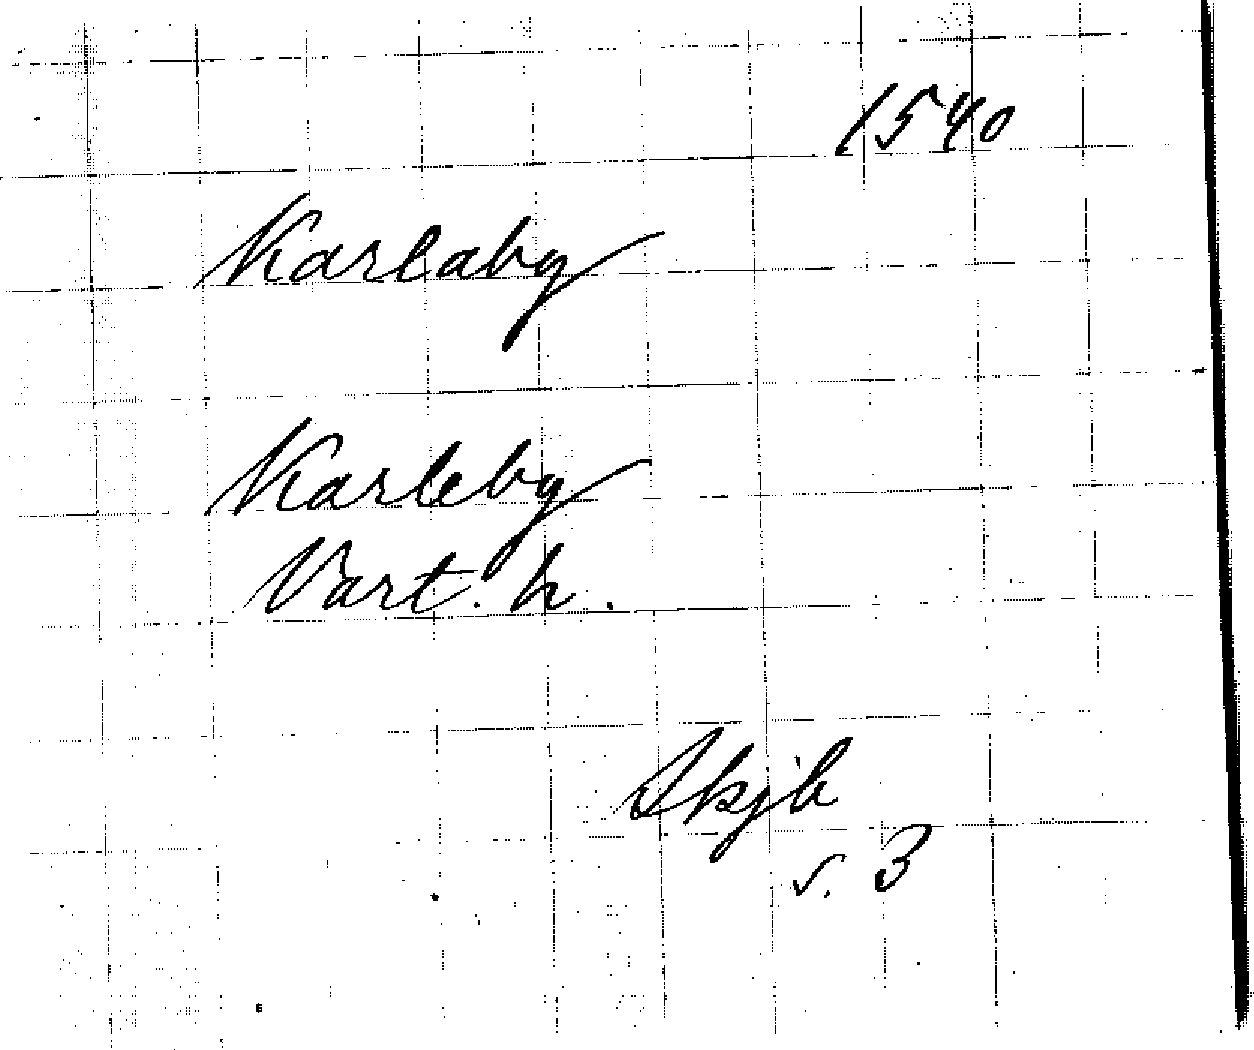 1540
Karlaby
Karleby
Vart. h.
Skjb
s. 3